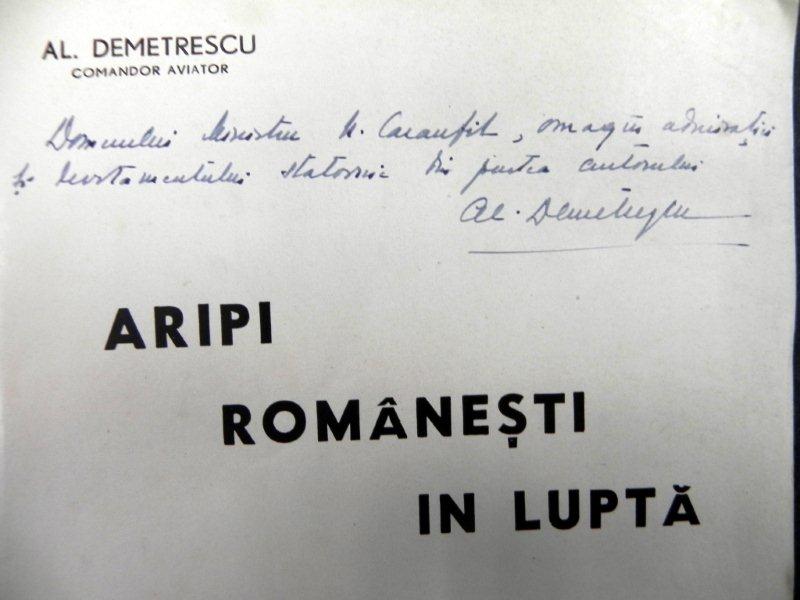 AL. DEMETRESCU
COMANDOR AVIATOR
Domnului Ministru N. Caranfil, omagiu admirației
și devotamentului statornic din partea autorului
Al. Demetrescu
ARIPI
ROMÂNEȘTI
IN LUPTĂ